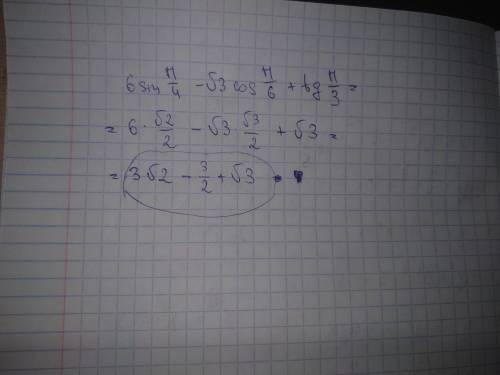 6 sin π/4 - √3 cos π/6 + tg π/3 =
= 6 · √2/2 - √3 · √3/2 + √3 =
= 3√2 - 3/2 + √3